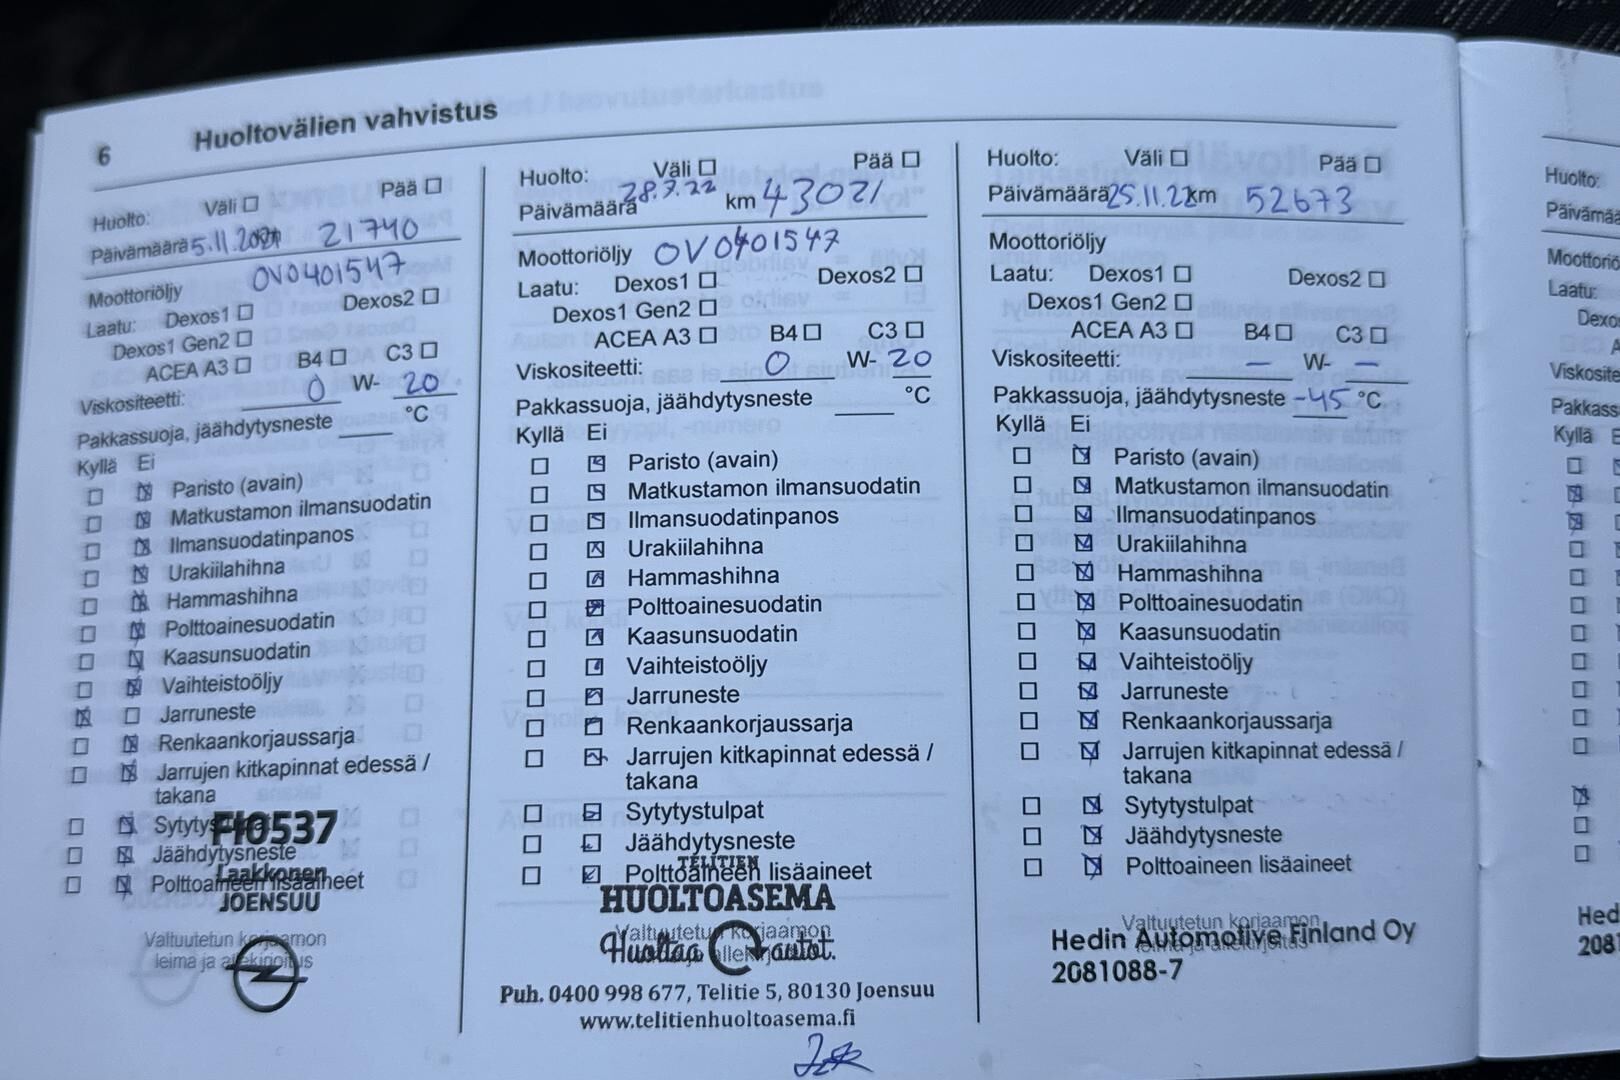 6 Huoltovälien vahvistus
Huolto: Väli Pää
Päivämäärä 5.11.2021 21740
Moottoriöljy OV0401547
Laatu: Dexos1 Dexos2
Dexos1 Gen2
ACEA A3 B4 C3
Viskositeetti: 0 W- 20
Pakkassuoja, jäähdytysneste °C
Kyllä Ei
Paristo (avain)
Matkustamon ilmansuodatin
Ilmansuodatinpanos
Urakiilahihna
Hammashihna
Polttoainesuodatin
Kaasunsuodatin
Vaihteistoöljy
Jarruneste
Renkaankorjaussarja
Jarrujen kitkapinnat edessä /
takana
FI0537
Jäähdytysneste
Polttoaineen lisäaineet
Laakkonen
JOENSUU
Valtuutetun korjaamon
leima ja allekirjoitus
Huolto: Väli Pää
Päivämäärä 28.7.22 km 43021
Moottoriöljy OV0401547
Laatu: Dexos1 Dexos2
Dexos1 Gen2
ACEA A3 B4 C3
Viskositeetti: 0 W- 20
Pakkassuoja, jäähdytysneste °C
Kyllä Ei
Paristo (avain)
Matkustamon ilmansuodatin
Ilmansuodatinpanos
Urakiilahihna
Hammashihna
Polttoainesuodatin
Kaasunsuodatin
Vaihteistoöljy
Jarruneste
Renkaankorjaussarja
Jarrujen kitkapinnat edessä /
takana
Sytytystulpat
Jäähdytysneste
Polttoaineen lisäaineet
TELITIEN
HUOLTOASEMA
Valtuutetun korjaamon
Huoltaa autot.
Puh. 0400 998 677, Telitie 5, 80130 Joensuu
www.telitienhuoltoasema.fi
Huolto: Väli Pää
Päivämäärä 25.11.22 km 52673
Moottoriöljy
Laatu: Dexos1 Dexos2
Dexos1 Gen2
ACEA A3 B4 C3
Viskositeetti: – W- –
Pakkassuoja, jäähdytysneste -45 °C
Kyllä Ei
Paristo (avain)
Matkustamon ilmansuodatin
Ilmansuodatinpanos
Urakiilahihna
Hammashihna
Polttoainesuodatin
Kaasunsuodatin
Vaihteistoöljy
Jarruneste
Renkaankorjaussarja
Jarrujen kitkapinnat edessä /
takana
Sytytystulpat
Jäähdytysneste
Polttoaineen lisäaineet
Valtuutetun korjaamon
Hedin Automotive Finland Oy
2081088-7
Huolto:
Laatu:
Kyllä